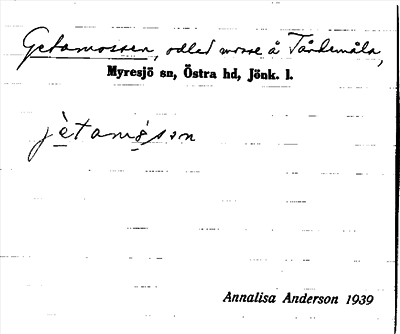 Getamossen, odled mosse å Tårdemåla,
Myresjö sn, Östra hd, Jönk. l.
jètamo̱sən
Annalisa Anderson 1939